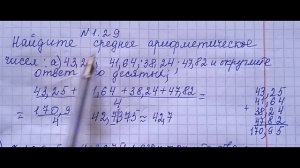 №1.29
Найдите среднее арифметическое
чисел: а) 43,2 41,64; 38,24; 47,82 и округлите
ответ до десятых;
43,25 + 1,64 + 38,24 + 47,82
4
= 170,9
4
42,7375 ≈ 42,7
43,25
41,64
38,24
47,82
170,95